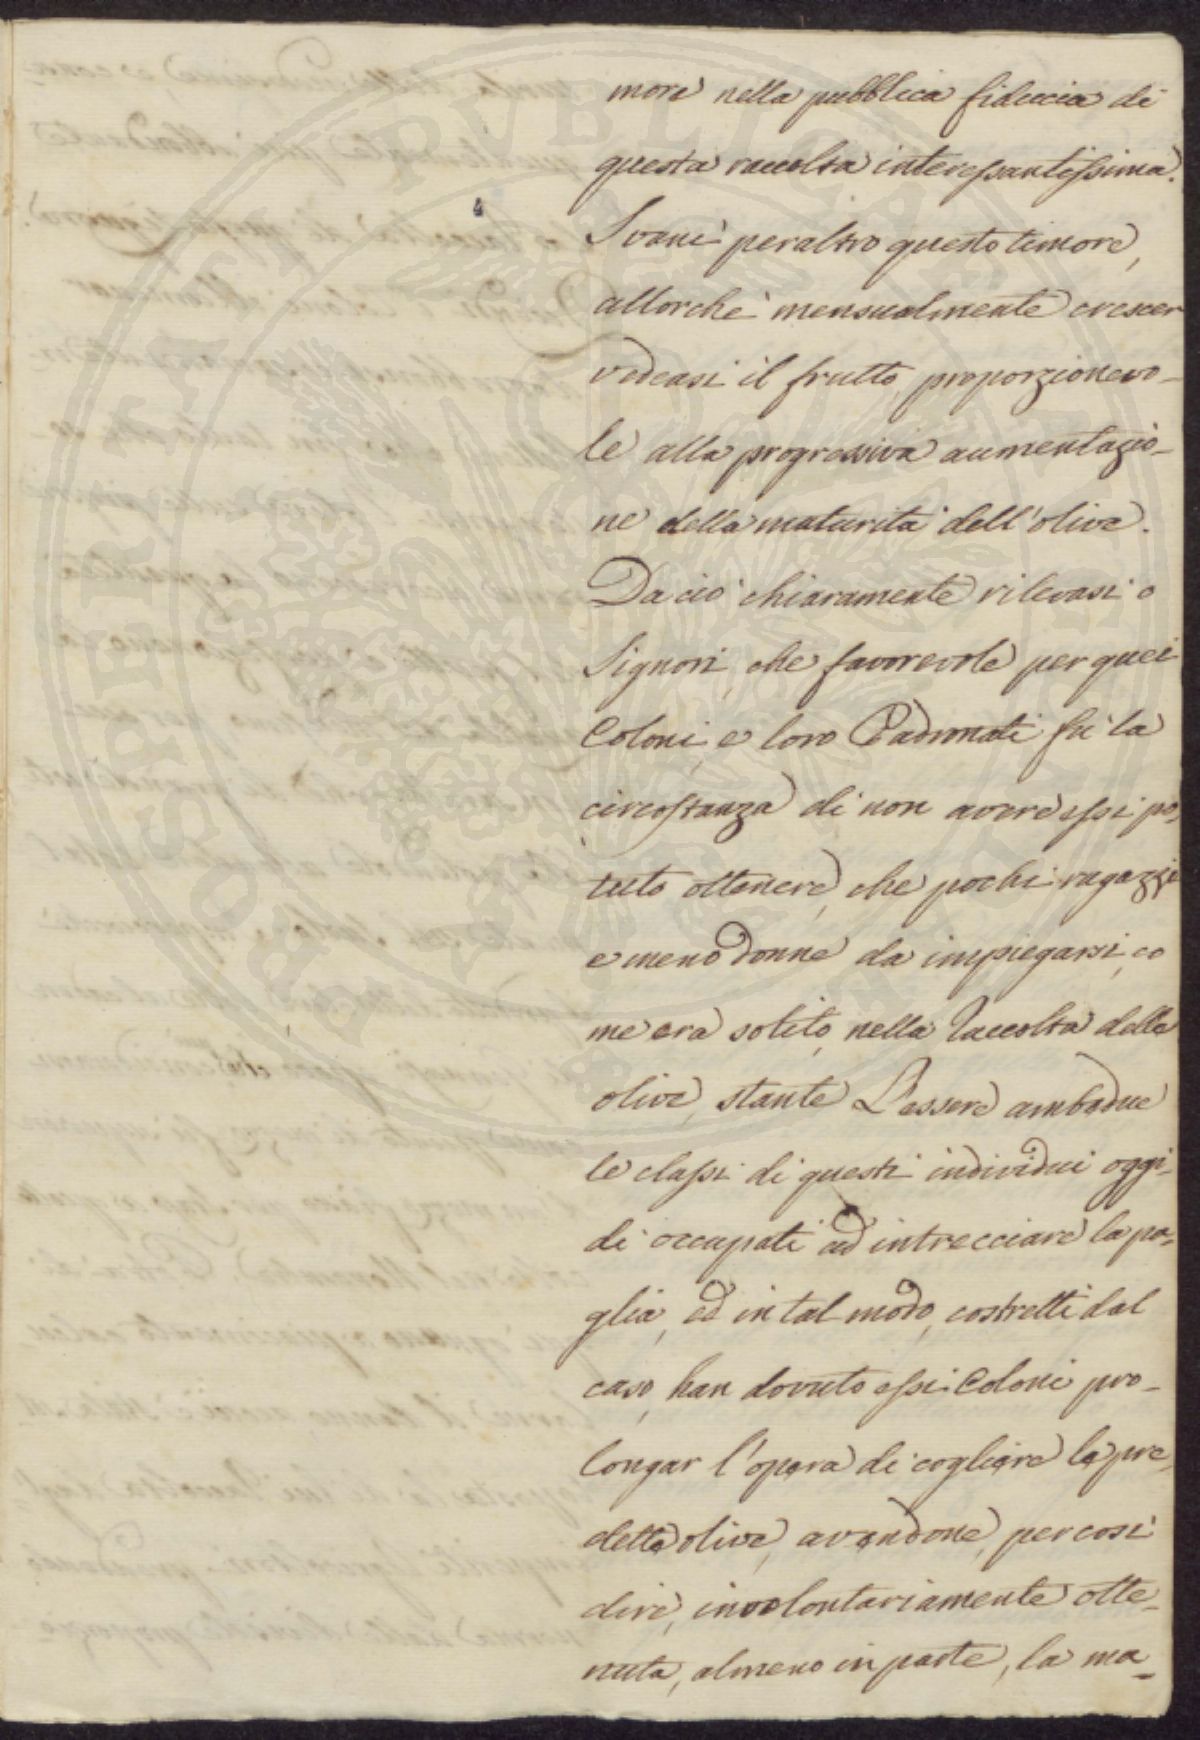 more nella pubblica fiducia di
questa raccolta interessantissima.
Svanì peraltro questo timore,
allorchè mensualmente crescer
vedeasi il frutto proporzionevo-
le alla progressiva aumentazio-
ne della maturità dell'olive.
Da ciò chiaramente rilevasi o
Signori, che favorevole per quei
Coloni, e loro Padronati fù la
circostanza di non avere essi po-
tuto ottenere, che pochi ragazzi
e meno donne da impiegarsi, co
me era solito, nella Raccolta delle
olive, stante L'essere ambedue
le classi di questi individui oggi-
di occupati ad intrecciare la pa-
glia, ed in tal modo, costretti dal
caso, han dovuto essi Coloni pro-
longar l'opera di cogliere le pre-
dette olive, avendone, per così
dire, involontariamente otte-
nuta, almeno in parte, la ma-
PROSPERITATI PUBLICAE AUGENDAE